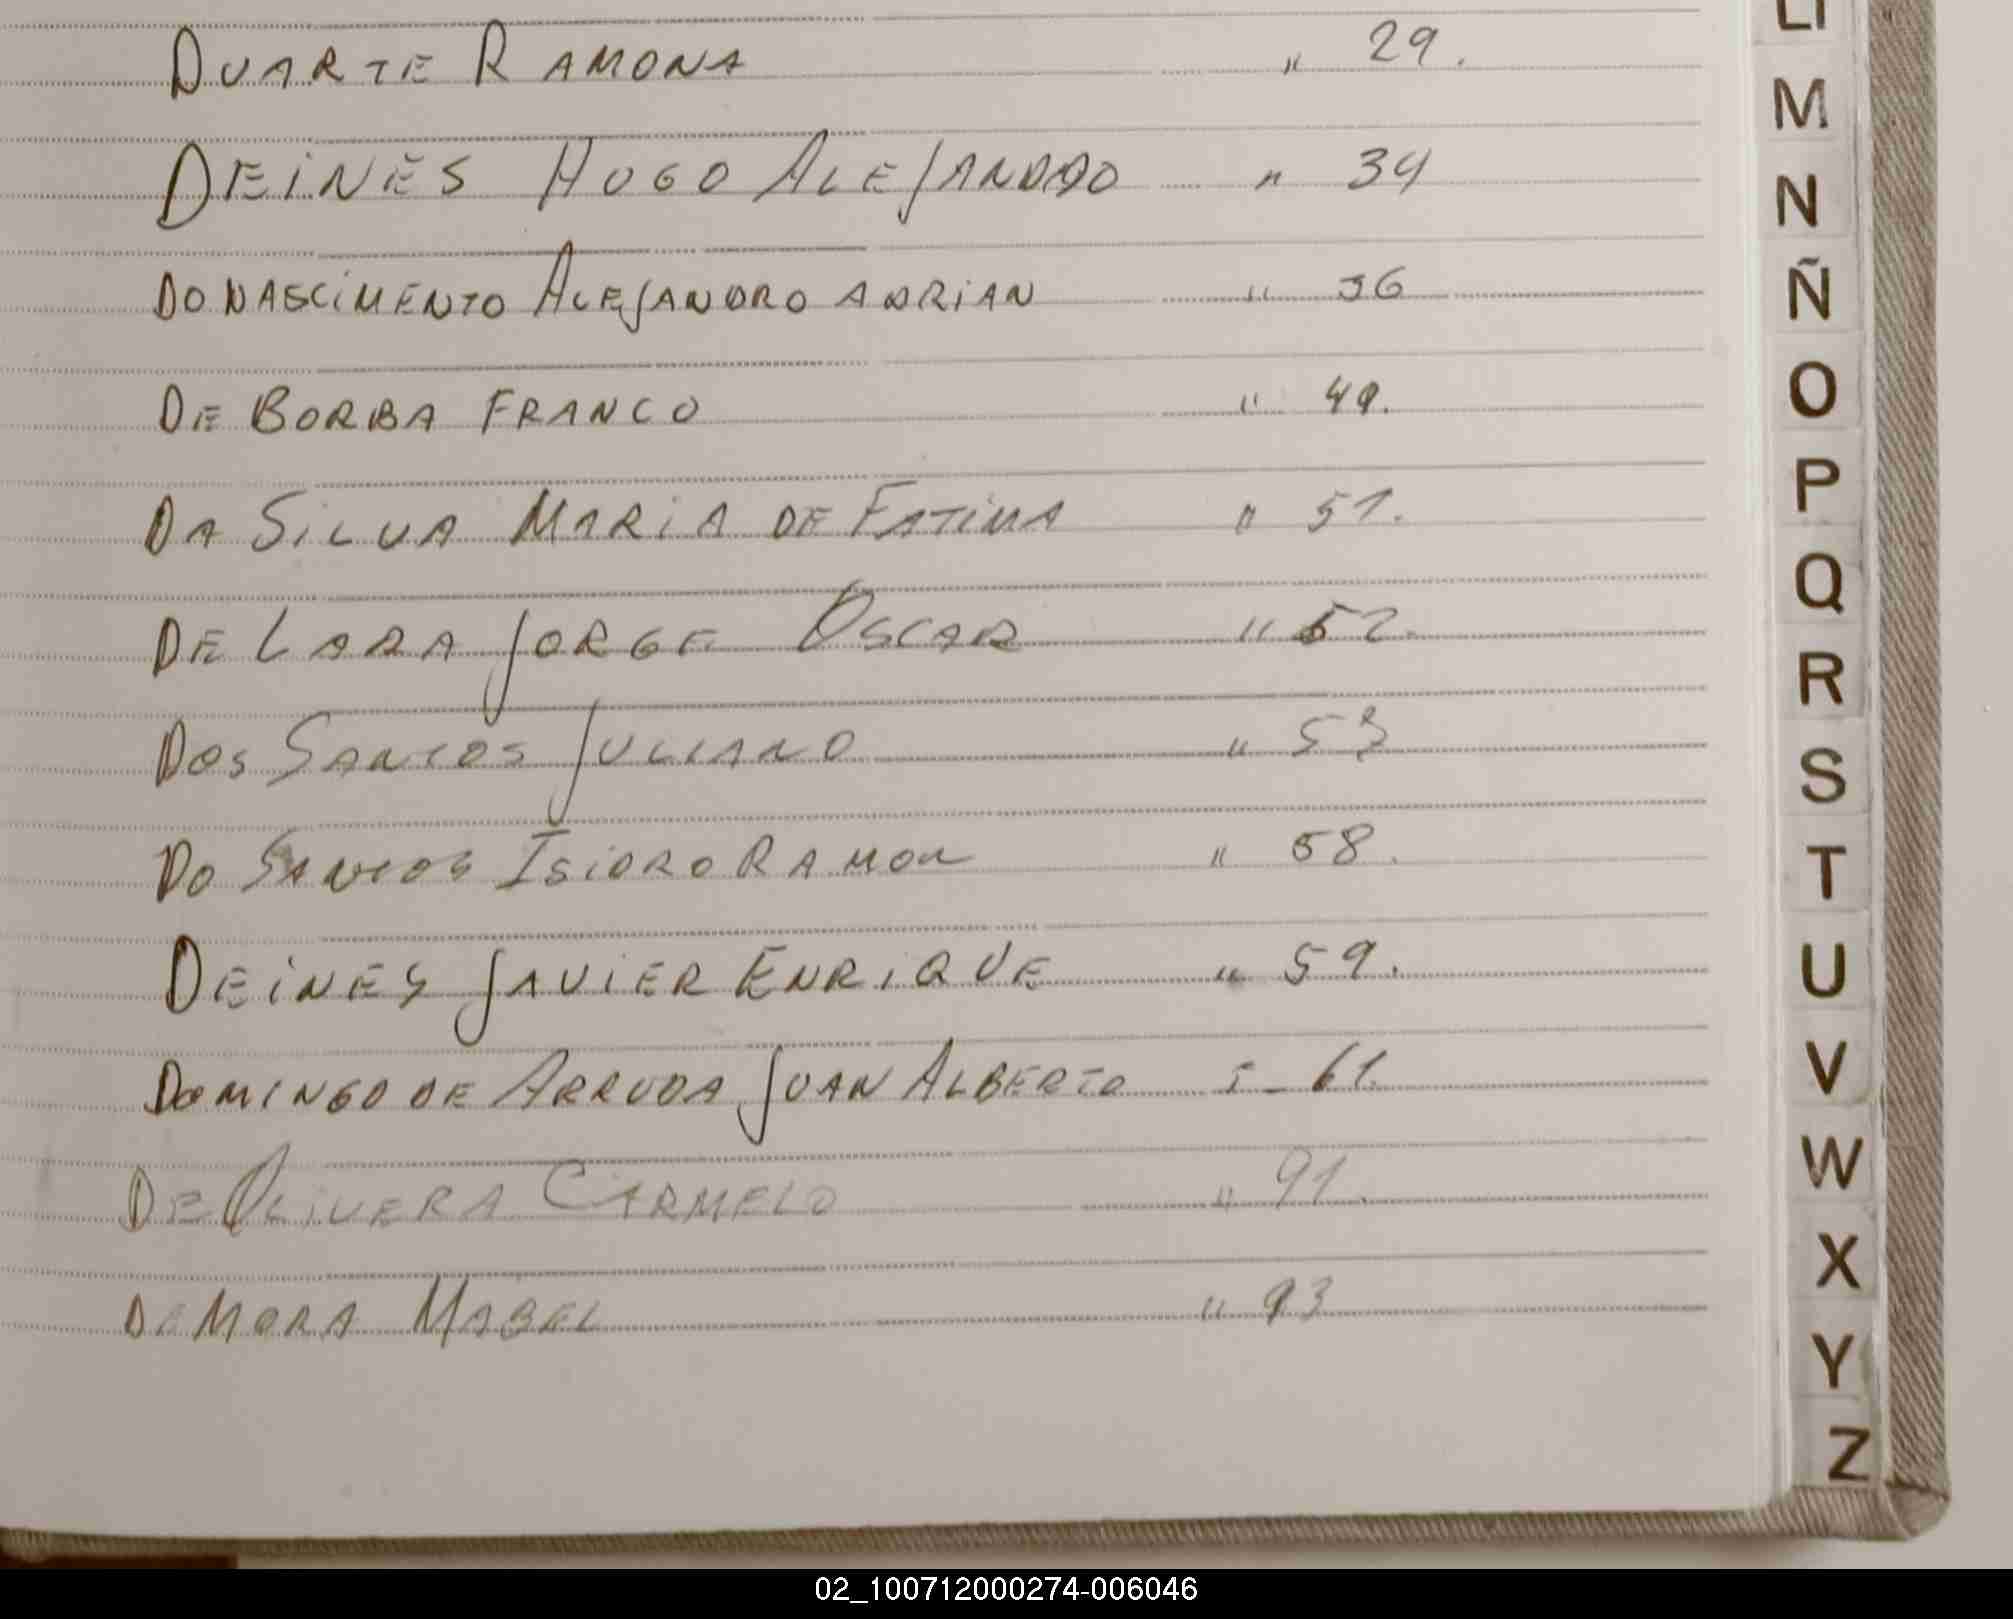 LL
DUARTE RAMONA " 29.
M
DEINES HUGO ALEJANDRO " 34
N
DO NASCIMENTO ALEJANDRO ADRIAN " 36
Ñ
DE BORBA FRANCO " 49.
O
P
DA SILVA MARIA DE FATIMA " 51.
Q
DE LARA JORGE OSCAR " 52.
R
DOS SANTOS JULIANO " 53
S
DO SANTOS ISIDRO RAMON " 58.
T
DEINES JAVIER ENRIQUE " 59.
U
DOMINGO DE ARRUDA JUAN ALBERTO I - 61.
V
W
DE OLIVERA CARMELO " 91.
X
DA MORA MABEL " 93
Y
Z
02_100712000274-006046